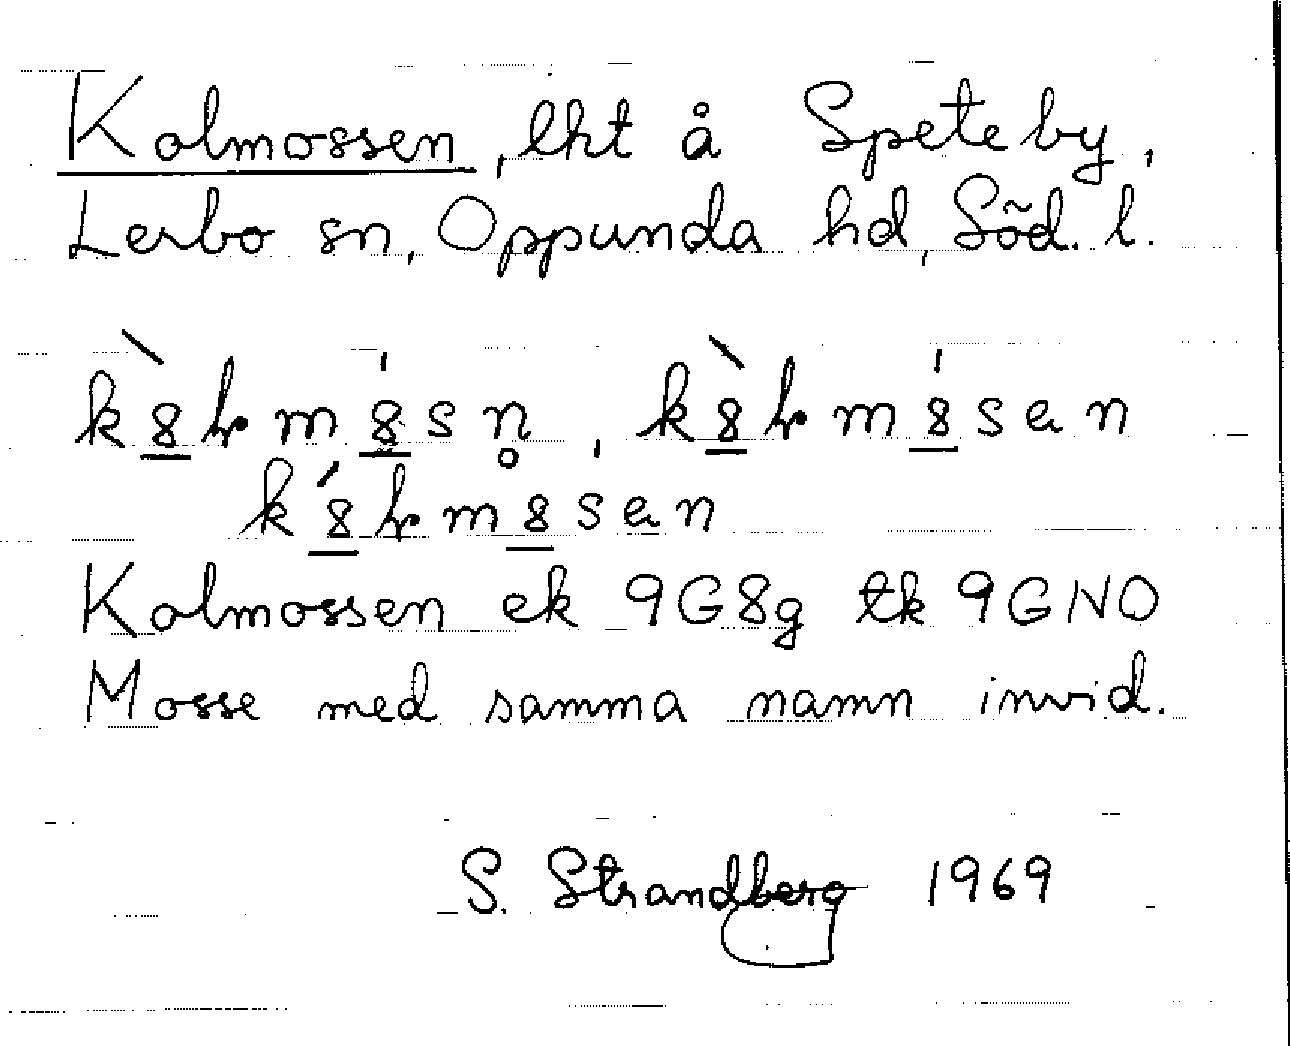 Kolmossen, lht å Speteby,
Lerbo sn, Oppunda hd, Söd. l.
k8̲̀ɬm8̲́sn̥, k8̲̀ɬm8̲́sən
k8̲́ɬm8̲sən
Kolmossen ek 9G8g tk 9GNO
Mosse med samma namn invid.
S. Strandberg 1969